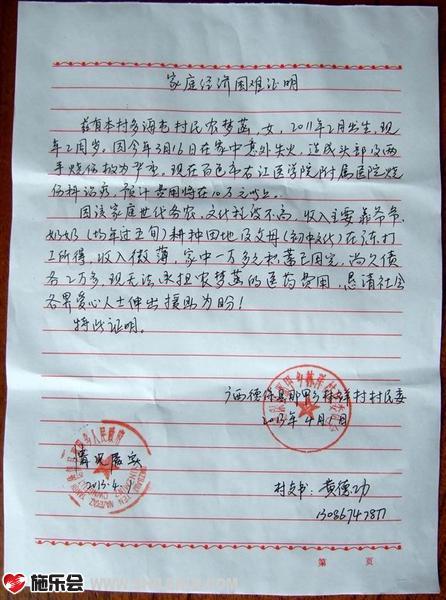 家庭经济困难证明
兹有本村多海屯村民农梦菡，女，2011年2月出生，现
年2周岁，因今年3月16日在家中意外失火，造成头部及两
手烧伤极为严重。现在百色市右江医学院附属医院烧
伤科治疗，预计费用将在10万元以上。
因该家庭世代务农，文化程度不高，收入主要靠爷爷、
奶奶（均年过五旬）耕种田地及父母（初中文化）在广东打
工所得，收入微薄，家中一万多元积蓄已用完，尚欠债
务2万多，现无法承担农梦菡的医药费用，恳请社会
各界爱心人士伸出援助为盼！
特此证明。
广西德保县那甲乡林祥村村民委
2013年4月1日
人民政府
情况属实
2013.4.1
村支书：黄德功
13086747877
第 页
施乐会